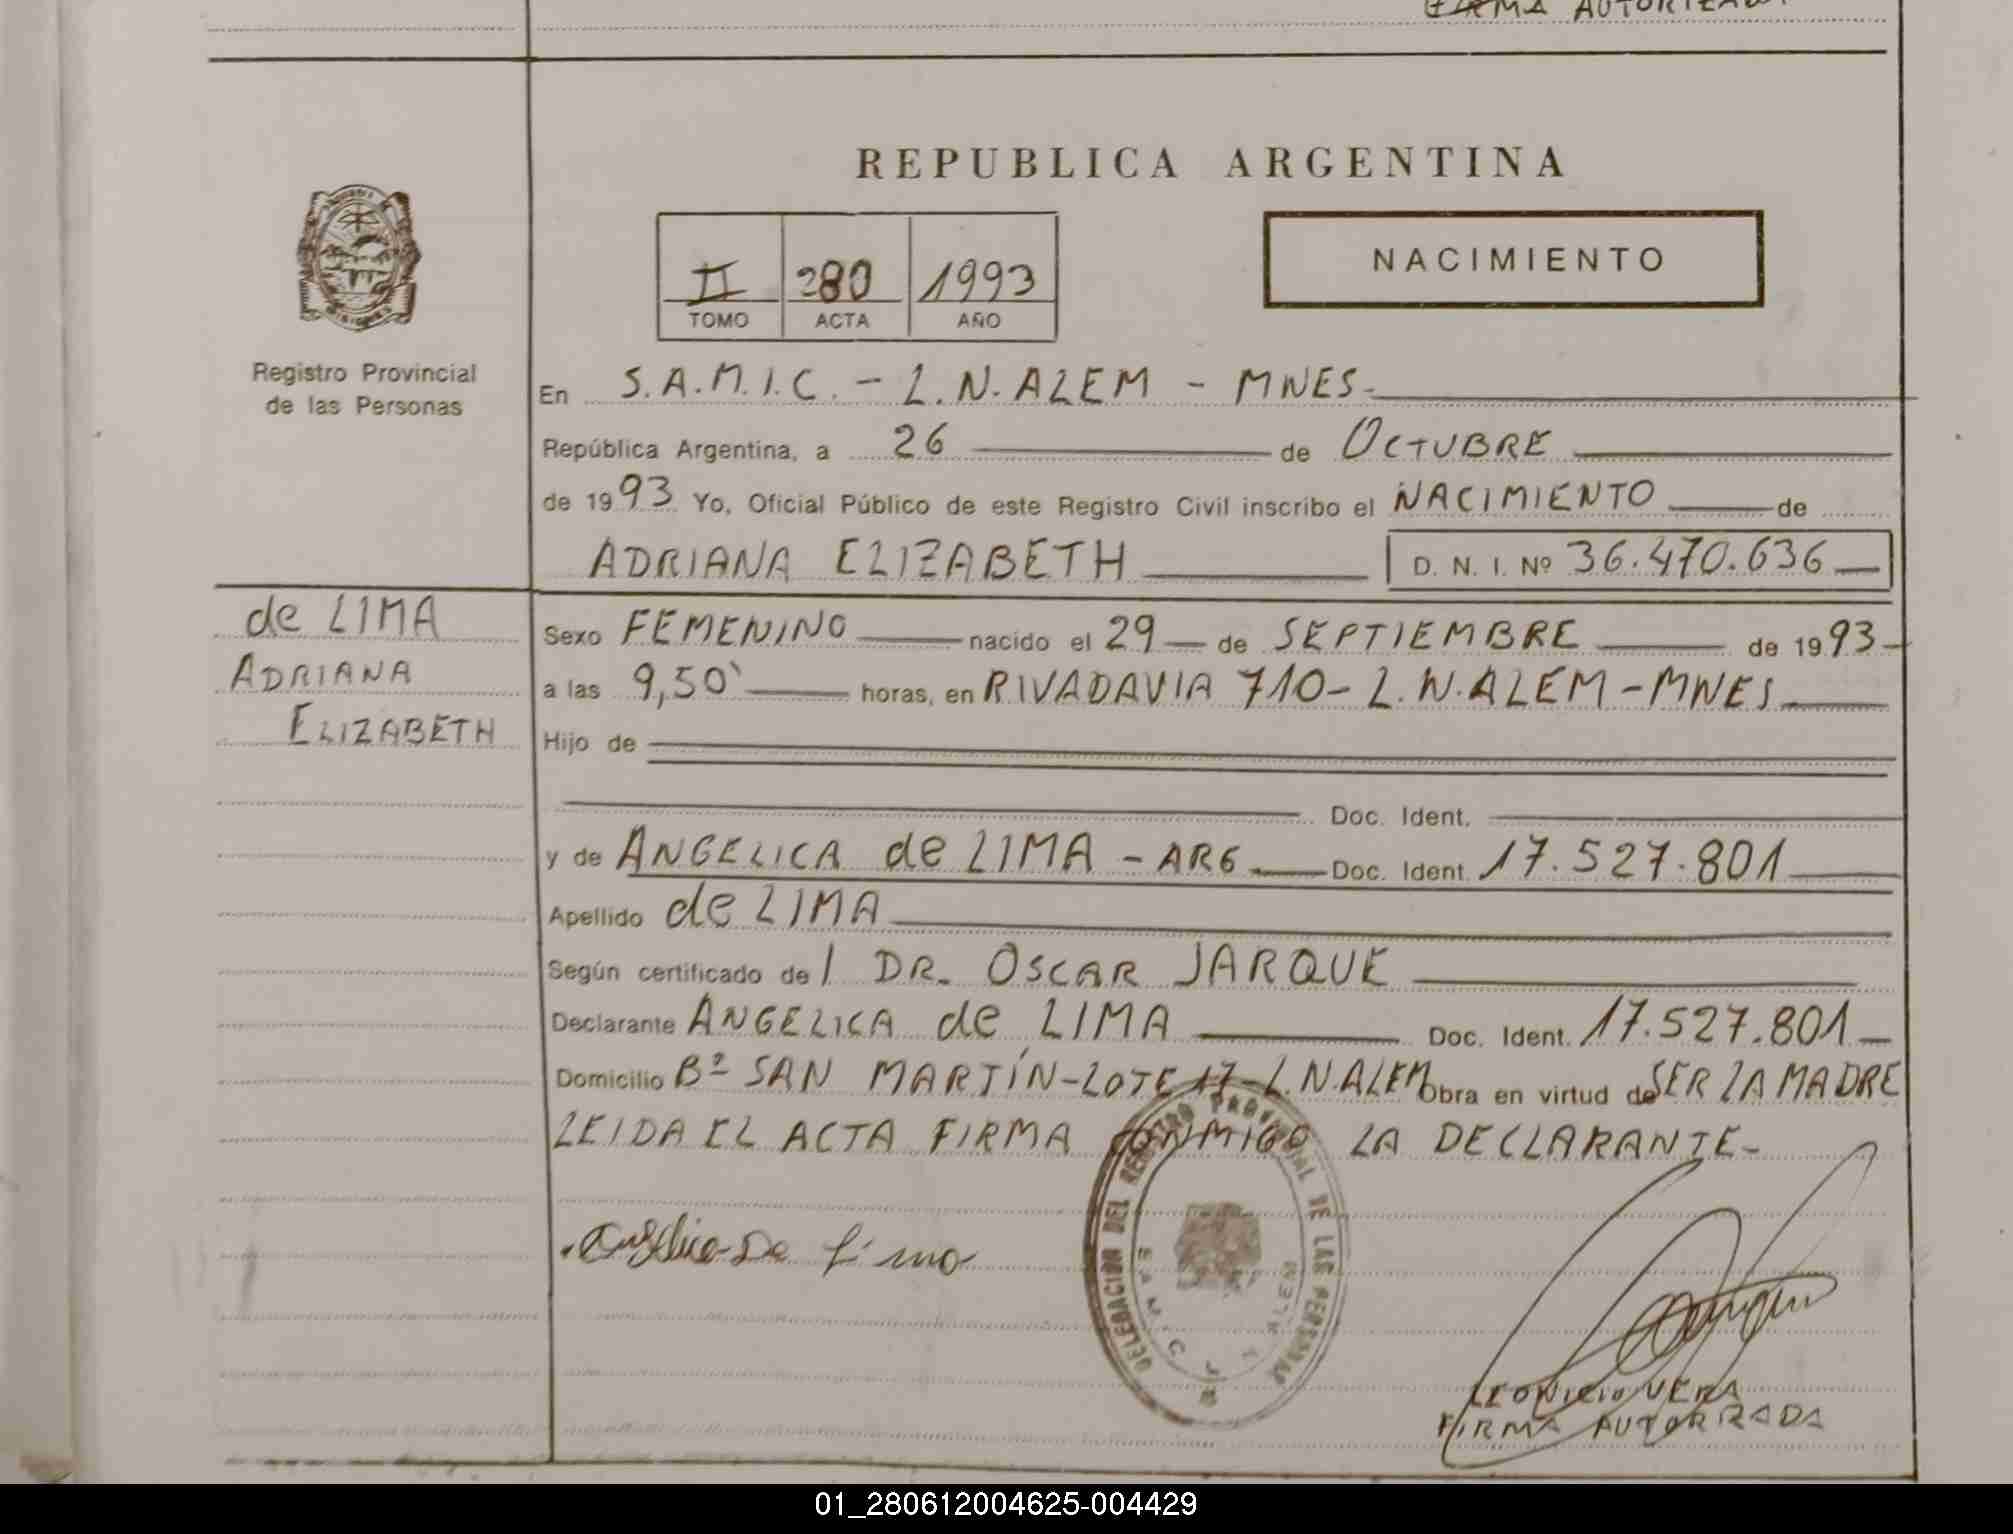 FIRMA AUTORIZADA
REPUBLICA ARGENTINA
II 280 1993
TOMO ACTA AÑO
NACIMIENTO
Registro Provincial
de las Personas
En S.A.M.I.C. - L.N. ALEM - MNES-
República Argentina, a 26 de OCTUBRE
de 1993 Yo, Oficial Público de este Registro Civil inscribo el NACIMIENTO de
ADRIANA ELIZABETH D. N. I. Nº 36.470.636
de LIMA
ADRIANA
ELIZABETH
Sexo FEMENINO nacido el 29 de SEPTIEMBRE de 1993
a las 9,50' horas, en RIVADAVIA 710- L.N. ALEM - MNES
Hijo de
Doc. Ident.
y de ANGELICA de LIMA - ARG Doc. Ident. 17.527.801
Apellido de LIMA
Según certificado de l DR. OSCAR JARQUE
Declarante ANGELICA de LIMA Doc. Ident. 17.527.801
Domicilio Bº SAN MARTÍN-LOTE 17-L.N.ALEM Obra en virtud de SER LA MADRE
LEIDA EL ACTA FIRMA CONMIGO LA DECLARANTE-
Angelica De Lima
DELEGACION DEL REGISTRO PROVINCIAL DE LAS PERSONAS
SAMIC L N ALEM
LEONICIO VERA
FIRMA AUTORRADA
01_280612004625-004429